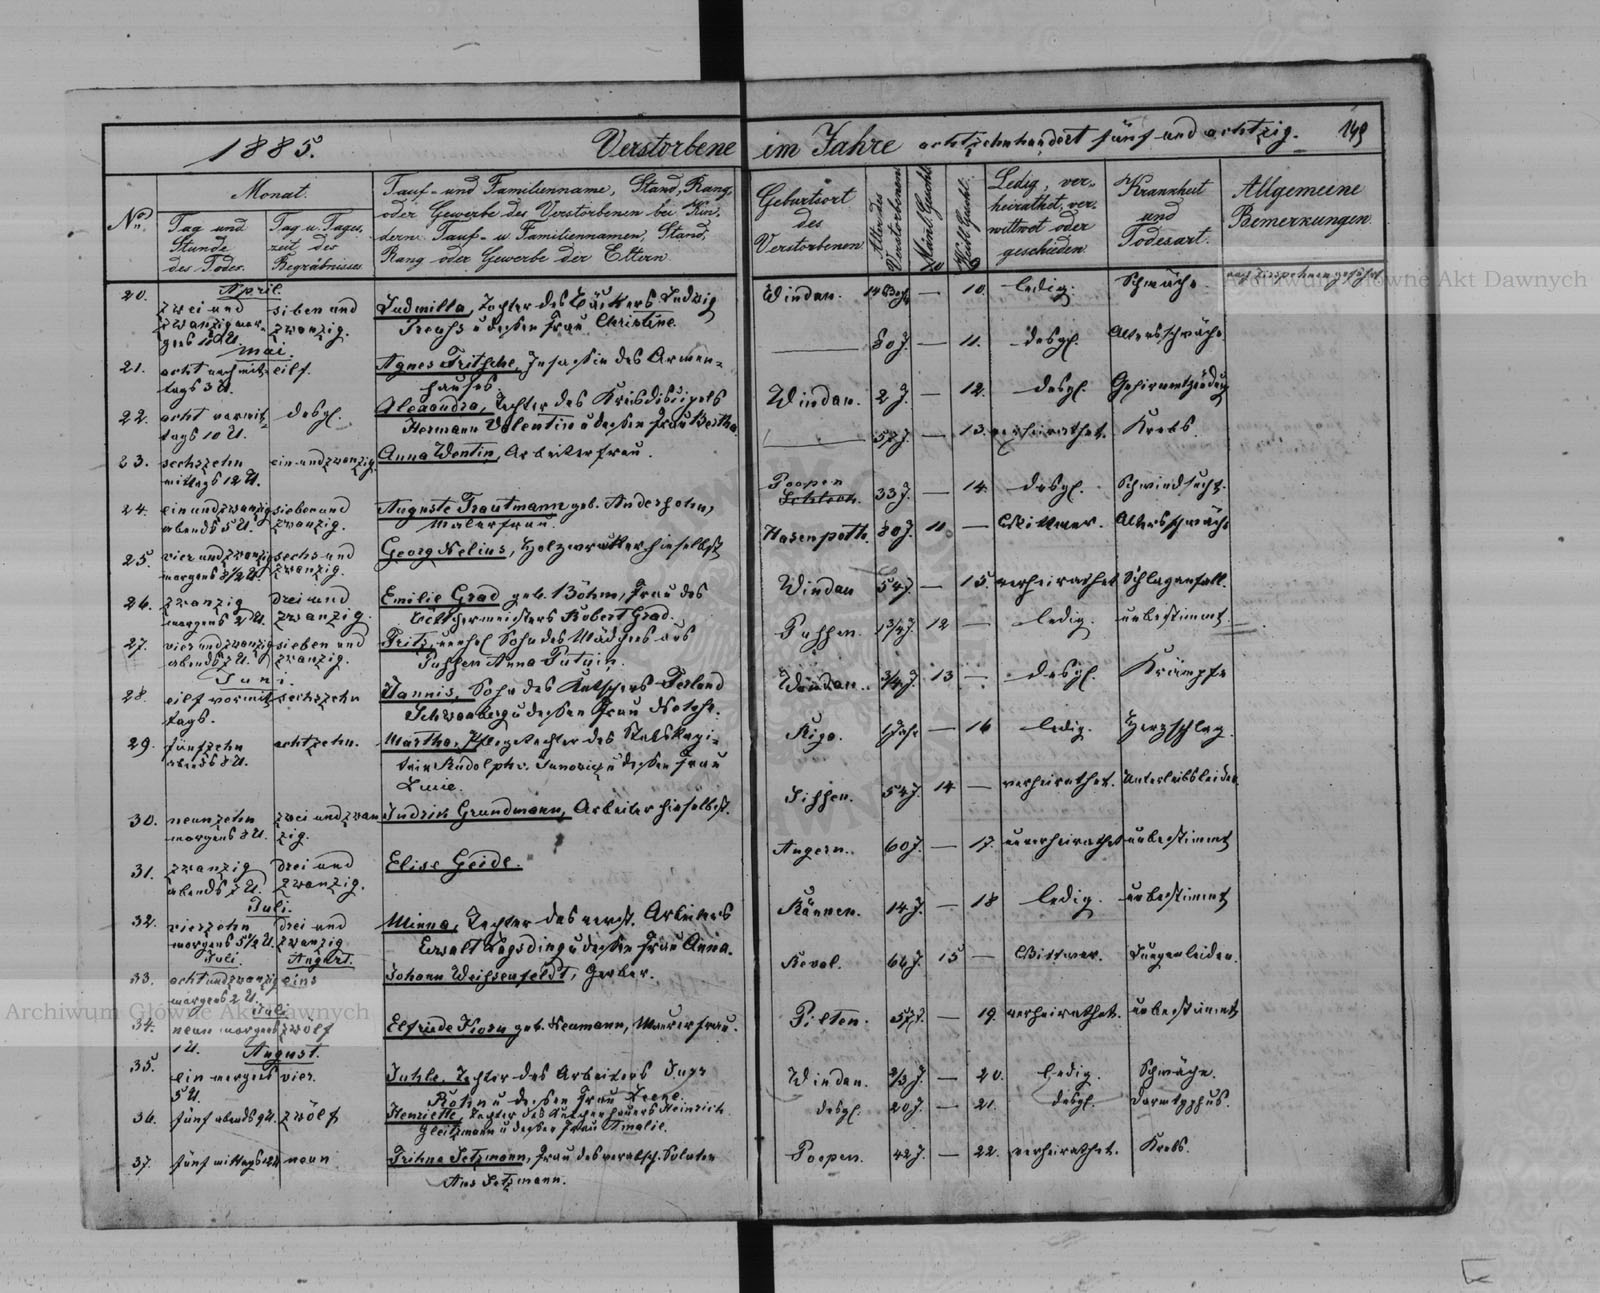 1885. Verstorbene im Jahre achtzehnhundert fünf und achtzig. 149
No. Monat.
Tag und Stunde des Todes.
Tag u. Tageszeit des Begräbnisses
Tauf- und Familienname, Stand, Rang,
oder Gewerbe des Verstorbenen bei Kin-
dern: Tauf- u. Familiennamen, Stand,
Rang oder Gewerbe der Eltern.
Geburtsort des Verstorbenen
Alter des Verstorbenen
Männl. Geschl.
Weibl. Geschl.
Ledig, ver-
heirathet, ver-
wittwet oder
geschieden
Krankheit und Todesart.
Allgemeine Bemerkungen.
10 9
April.
20. zwei und sieben und Ludmilla, Tochter des Bäckers Ludwig Windau. — 10. ledig. Schwäche.
zwanzig mor- zwanzig. u dessen Frau Christine.
gens
Mai.
21. acht nachmit- eilf. Agnes Fritsche, Insassin des Armen- — 80 J. — 11. desgl. Altersschwäche
tags 3 U. hauses.
22. acht vormit- desgl. Alexandra, Tochter des Kreisdiscipels Windau. 2 J. — 12. desgl. Gehirnentzündung
tags 10 U. Hermann Valentin u dessen Frau Bertha.
23. sechszehn ein und zwanzig Anna Wentin, Arbeiterfrau. — 57 J. — 13. verheirathet. Krebs.
mittags 12 U.
24. ein und zwanzig sieben und Auguste Trautmann geb. Andersohn, Poopen 33 J. — 14. desgl. Schwindsucht.
abends 5 U. zwanzig. Malerfrau.
25. vier und zwanzig sechs und Georg Nelius, Holzwraker hieselbst Hasenpoth. 80 J. 11. — Wittwer. Altersschwäche
morgens 3½ U. zwanzig.
26. zwanzig drei und Emilie Grad geb. Böhm, Frau des Windau 54 J. — 15. verheirathet Schlaganfall.
morgens 2 U. zwanzig. Böttchermeisters Robert Grad.
27. vier und zwanzig sieben und Fritz, unehel. Sohn des Mädchens aus 12 — ledig. unbestimmt.
abends 7 U. zwanzig. Anna
Juni.
28. eilf vormit- sechszehn Jannis, Sohn des Kutschers Windau. ¾ J. 13 — desgl. Krämpfe
tags. u dessen Frau
29. fünfzehn achtzehn. Martha, Pflegetochter des Riga. — 16 ledig. Herzschlag.
abends 8 U. Rudolph u dessen Frau
30. neunzehn zwei und zwan- Indrik Grundmann, Arbeiter hieselbst. 54 J. 14 — verheirathet. Unterleibsleiden.
morgens 8 U. zig.
31. zwanzig drei und Elise Geide. Angern. 60 J. — 17. unverheirathet unbestimmt
abends 7 U. zwanzig.
Juli.
32. vierzehn drei und Minna, Tochter des verst. Arbeiters 14 J. — 18 ledig. unbestimmt
morgens 5½ U. zwanzig Ewalt u dessen Frau Anna.
Juli. August.
33. acht und zwanzig eins Johann Weissenfeldt, Gerber. Reval. 15 — Wittwer. Lungenleiden.
morgens 2 U.
Juli
34. neun morgens zwölf Elfriede geb. Neumann, Maurerfrau. Pilten. 57 J. — 19. verheirathet. unbestimmt
1 U.
August.
35. ein morgens vier. Tochter des Arbeiters Windau. ⅔ J. — 20. ledig. Schwäche.
5 U. u dessen Frau
36. fünf abends 9 U. zwölf Henriette, Tochter des Heinrich desgl. 20 J. — 21. desgl. Darmtyphus.
u dessen Frau Amalie.
37. fünf mittags 12 U. neun Trihne Setzmann, Frau des verabsch. Soldaten Poopen. 42 J. — 22. verheirathet. Krebs.
Ans Setzmann.
Archiwum Główne Akt Dawnych
Archiwum Główne Akt Dawnych